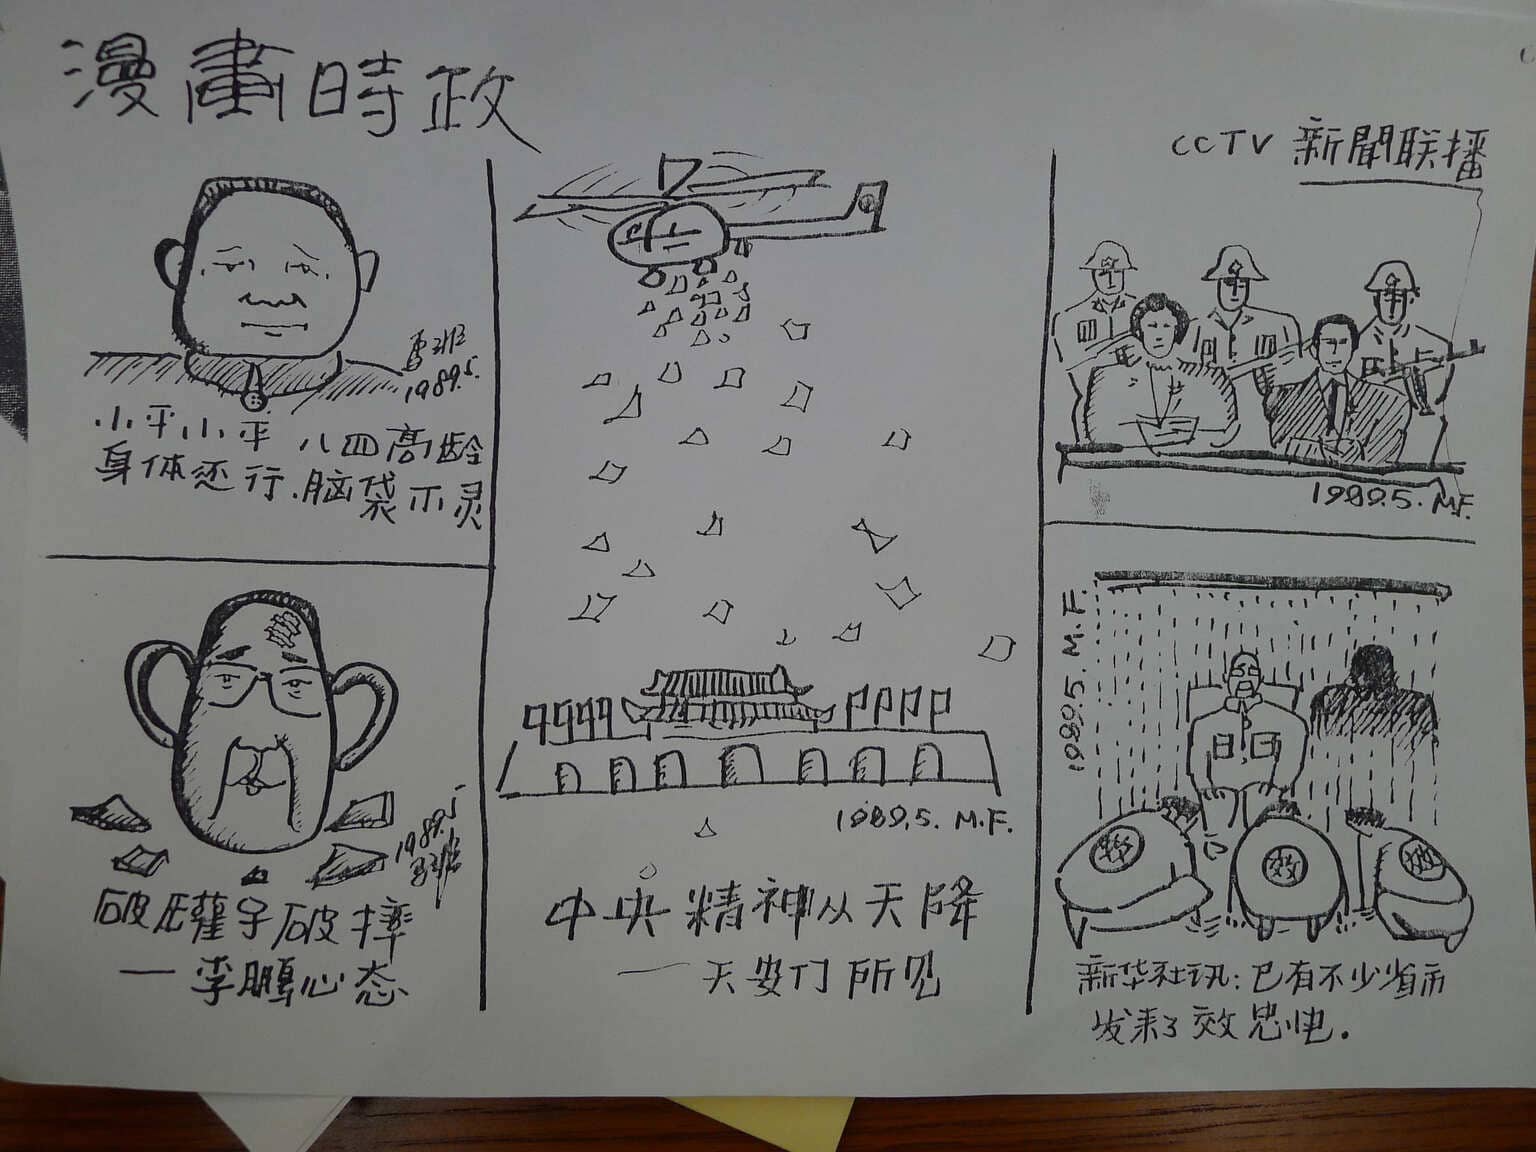 漫畫時政
1989.5.
小平小平 八四高龄
身体还行.脑袋不灵
1989.5
破瓦罐子破摔
—李鹏心态
1989.5. M.F.
中央精神从天降
—天安门所见
CCTV 新聞联播
1989.5. M.F.
1989.5. M.F.
效
效
效
新华社讯:已有不少省市
发来了效忠电.